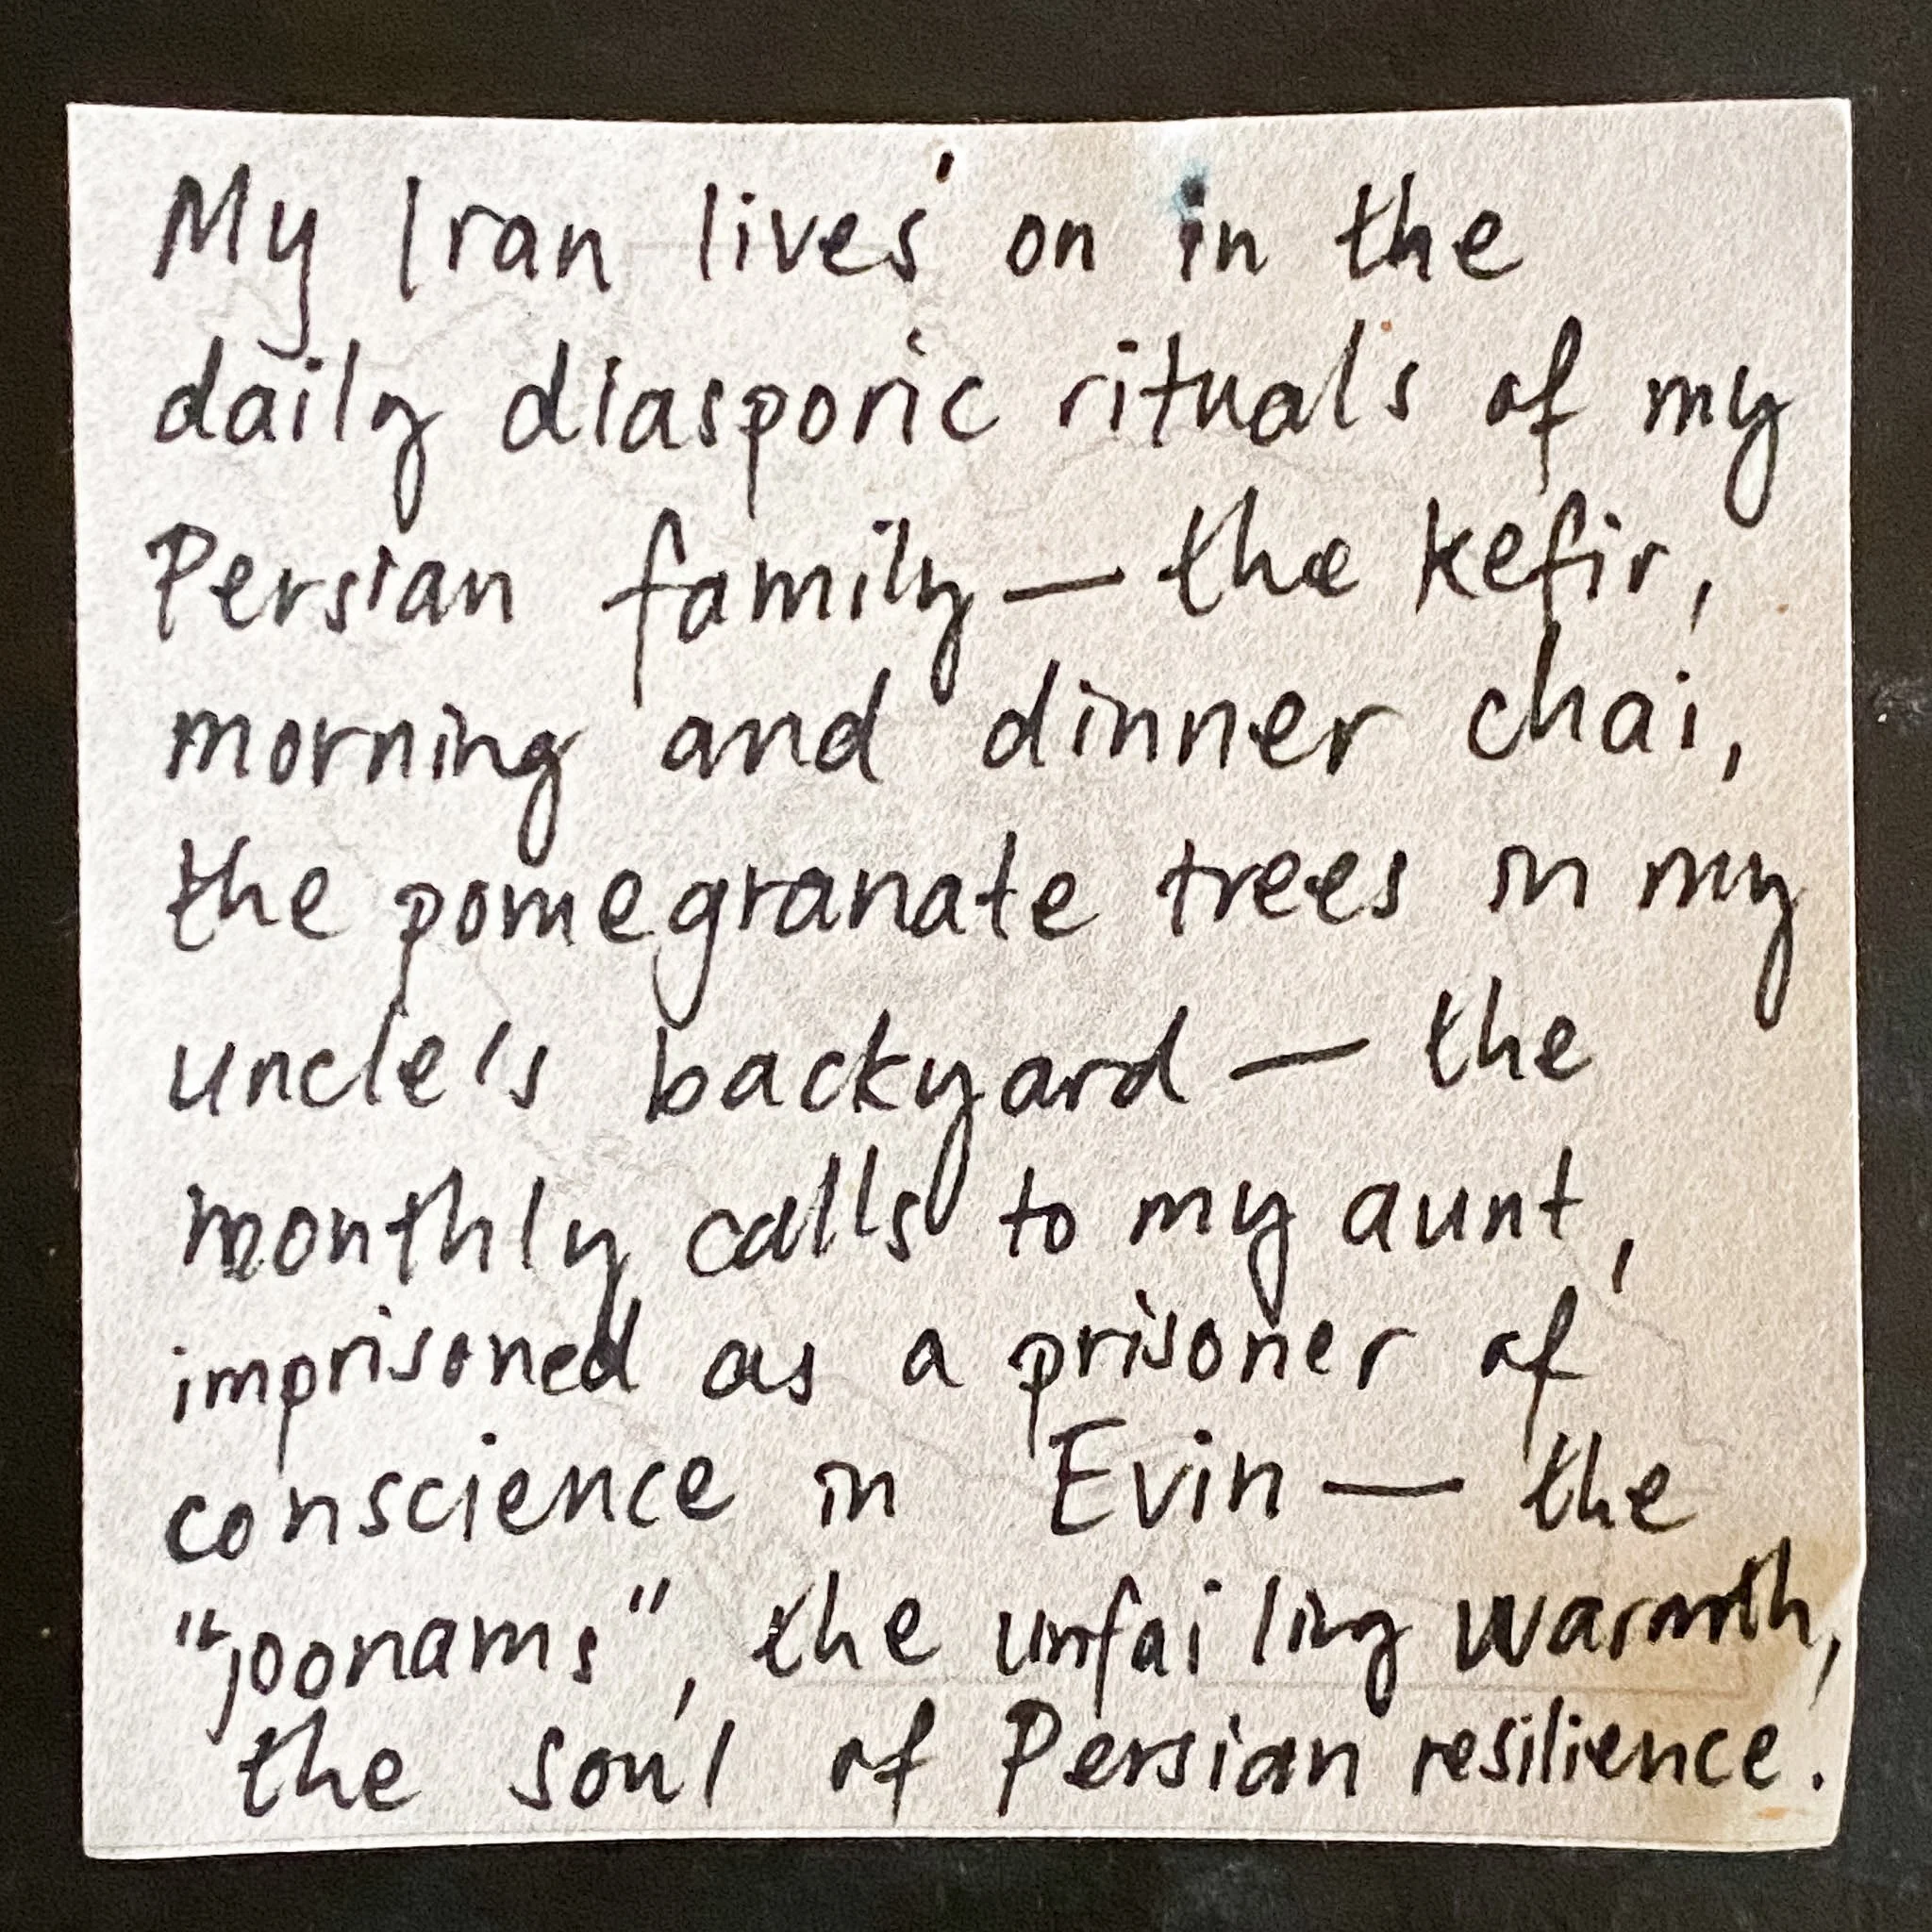 My Iran lives on in the
daily diasporic rituals of my
Persian family — the kefir,
morning and dinner chai,
the pomegranate trees in my
uncle's backyard — the
monthly calls to my aunt,
imprisoned as a prisoner of
conscience in Evin — the
"joonams", the unfailing warmth,
the soul of Persian resilience.